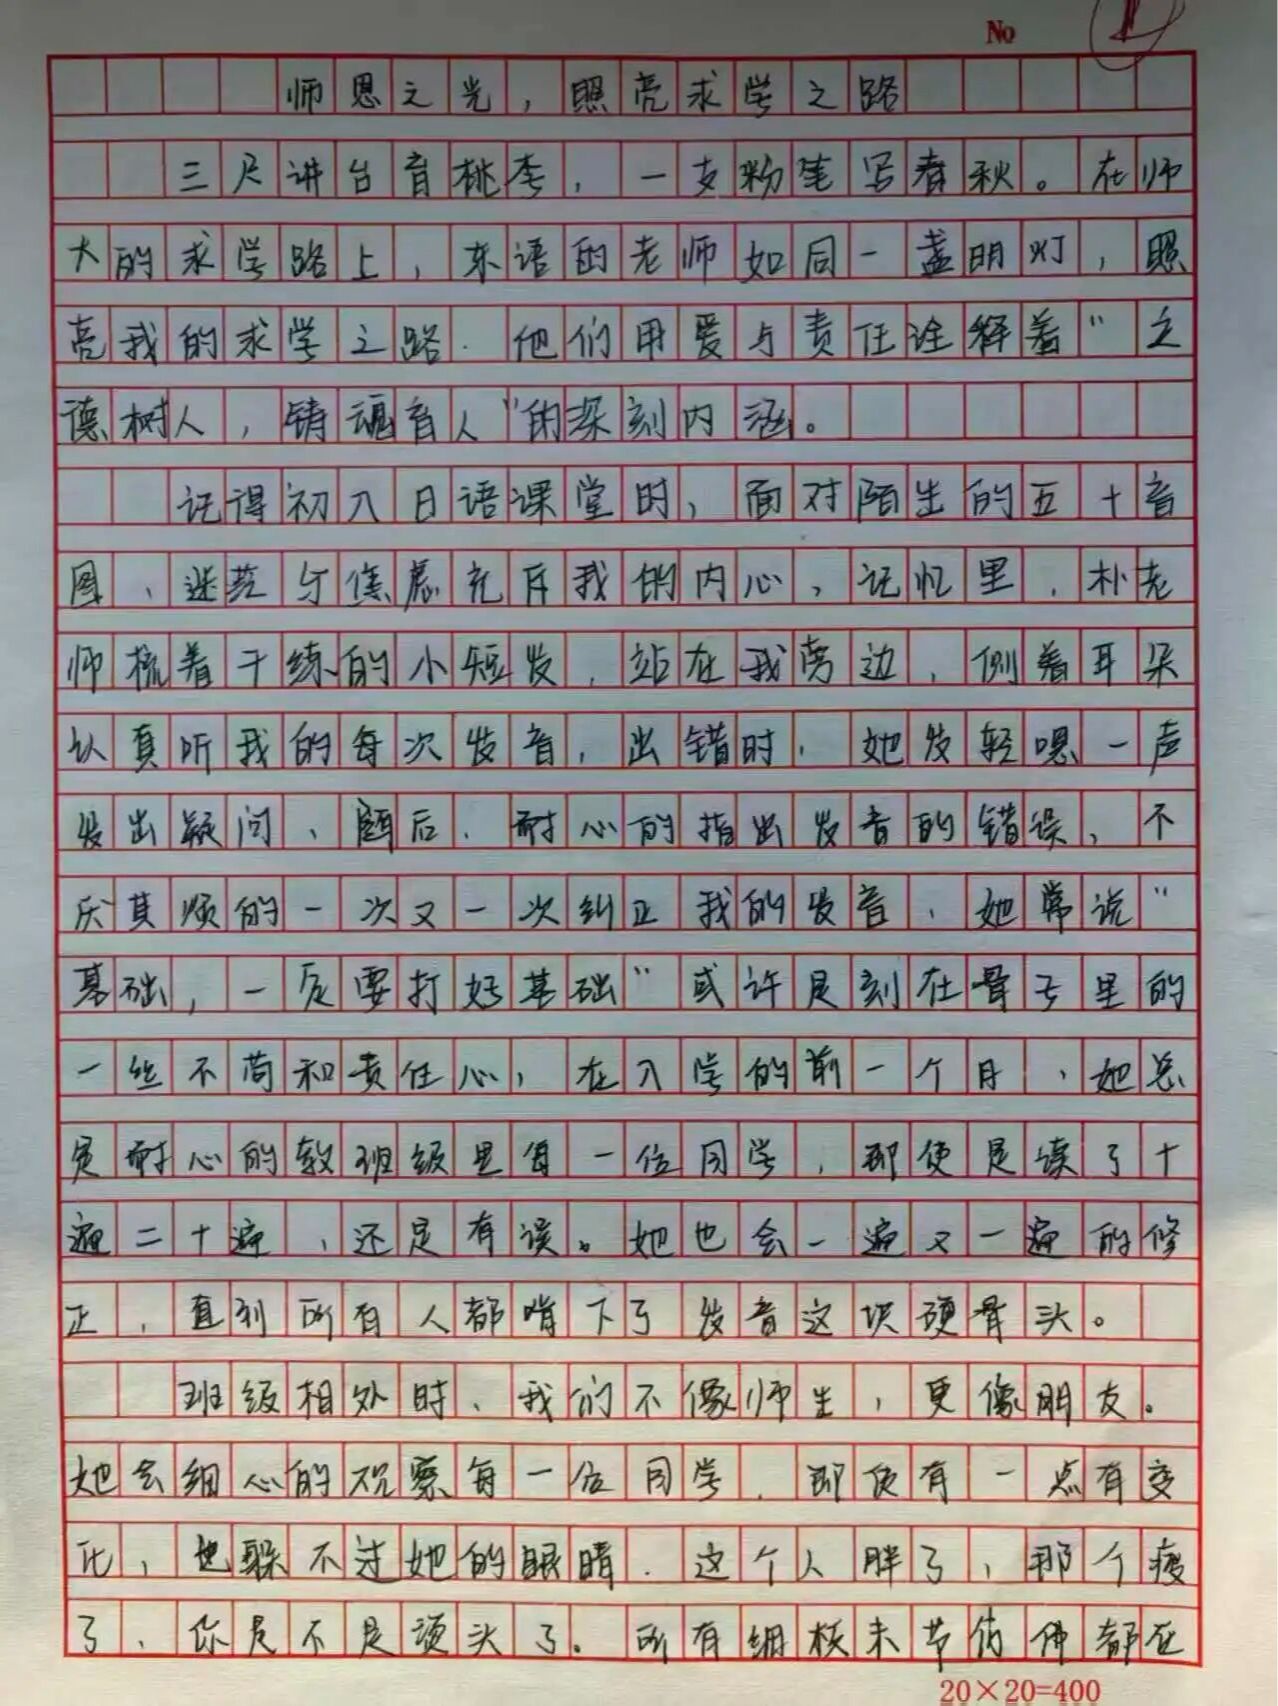 No
师恩之光，照亮求学之路
三尺讲台育桃李，一支粉笔写春秋。在师
大的求学路上，东语的老师如同一盏明灯，照
亮我的求学之路．他们用爱与责任诠释着“立
德树人，铸魂育人”的深刻内涵。
记得初入日语课堂时，面对陌生的五十音
图，迷茫与焦虑充斥我的内心，记忆里，朴老
师梳着干练的小短发，站在我旁边，侧着耳朵
认真听我的每次发音，出错时，她发轻嗯一声
发出疑问，随后，耐心的指出发音的错误，不
厌其烦的一次又一次纠正我的发音，她常说“
基础，一定要打好基础”或许是刻在骨子里的
一丝不苟和责任心，在入学的前一个月，她总
是耐心的教班级里每一位同学，即使是读了十
遍二十遍，还是有误。她也会一遍又一遍的修
正，直到所有人都啃下了发音这块硬骨头。
班级相处时，我们不像师生，更像朋友。
她会细心的观察每一位同学．即使有一点有变
化，也躲不过她的眼睛．这个人胖了，那个瘦
了，你是不是烫头了。所有细枝末节仿佛都在
20×20=400